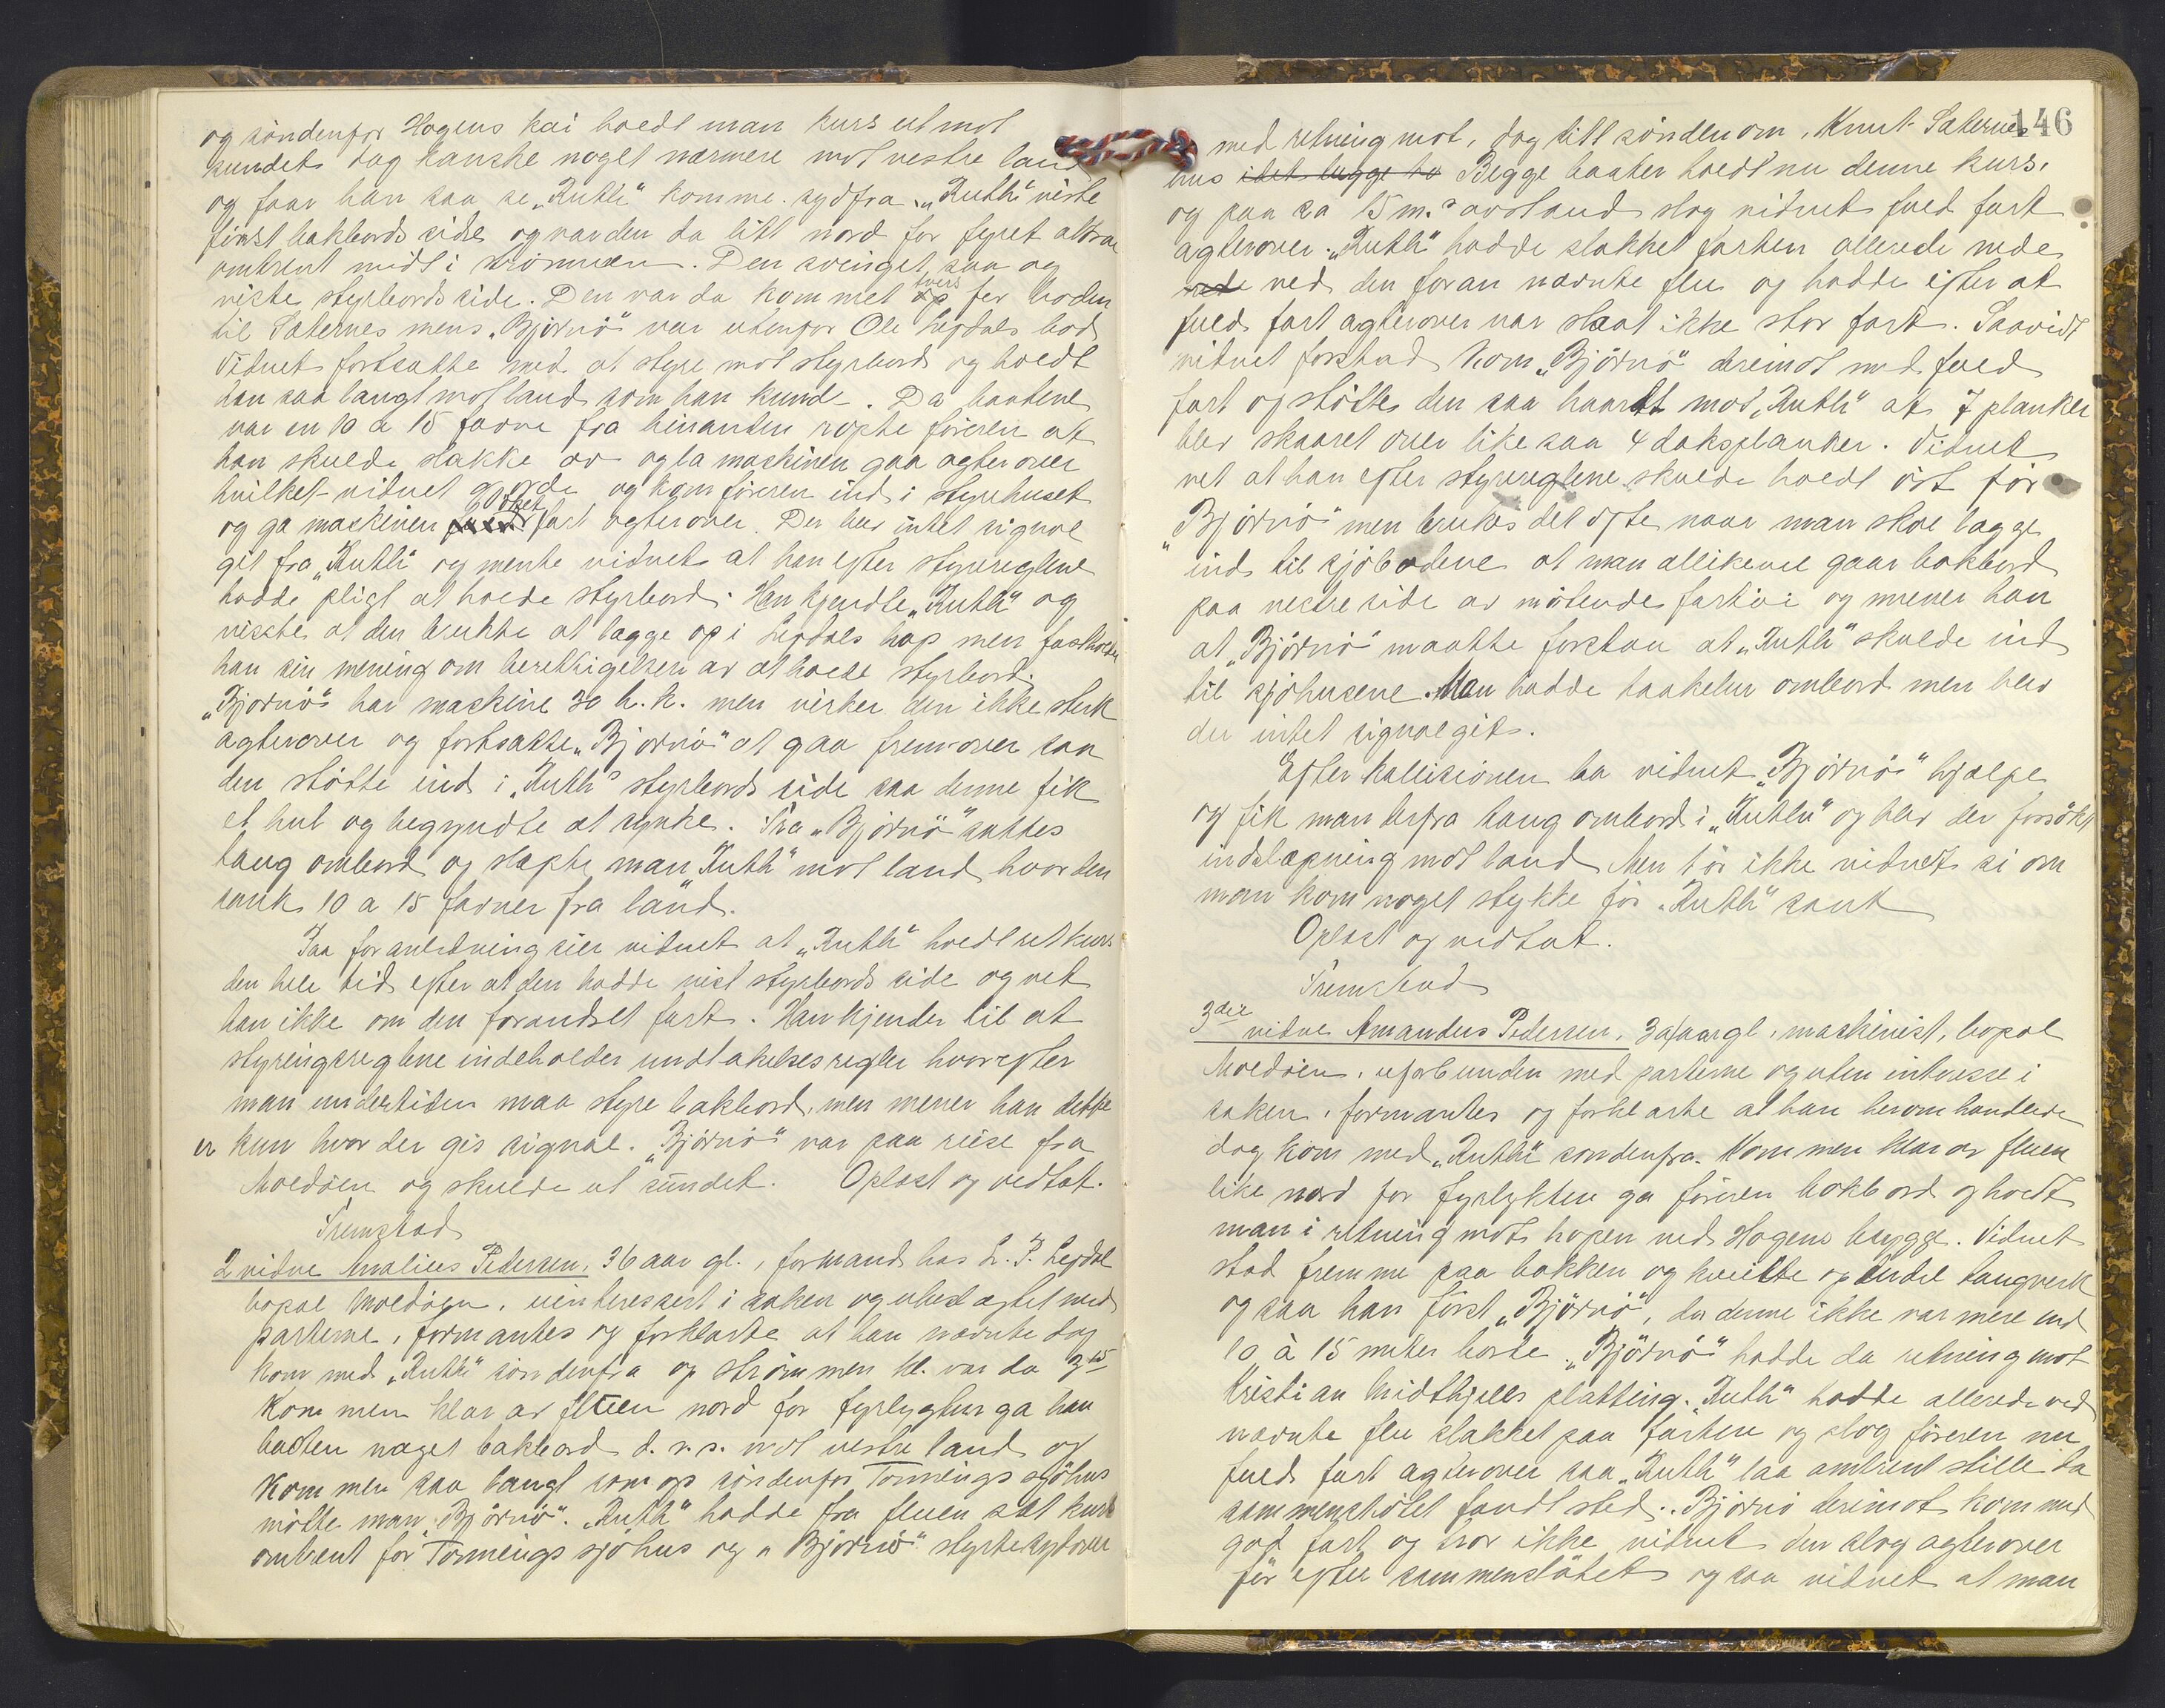 og söndenfor Hogens kai holdt man kurs ut mot
sundet dog kanske noget nærmere mot vestre land
og faar han saa se "Ruth" komme sydfra. "Ruth" viste
först bakbords side og var den da litt nord for fyret
omtrent midt i strömmen. Den svinget saa og
viste styrbords side. Den var da kommet tvers for boden
til Sæternes mens "Björnö" var utenfor Ole Lepdals bod
Vidnet fortsatte med at styre mot styrbord og holdt
han saa langt mot land som han kunde. Da baatene
var en 10 a 15 favne fra hinanden ropte föreren at
han skulde slakke av og la maskinen gaa agterover
hvilket vidnet gjorde og kom föreren ind i styrehuset
og ga maskinen fart agterover. Der blev intet signal
git fra "Ruth" og mente vidnet at han efter styrereglene
hadde pligt at holde styrbord. Han kjendte "Ruth" og
visste at den brukte at lægge op i Lepdals hop men fastholder
han sin mening om berettigelsen av at holde styrbord.
"Björnö" har maskine 30 h.k. men virker den ikke sterk
agterover og fortsatte "Björnö" at gaa fremover saa
den stötte ind i "Ruth"s styrbords side saa denne fik
et hul og begyndte at synke. Fra "Björnö" sattes
taug ombord og slæpte man "Ruth" mot land hvor den
sank 10 a 15 favner fra land.
Paa foranledning sier vidnet at "Ruth" holdt ret kurs
den hele tid efter at den hadde vist styrbords side og vet
han ikke om den forandret fart. Han kjender til at
styringsreglene indeholder undtakelsesregler hvorefter
man undertiden maa styre bakbord, men mener han dette
er kun hvor der gis signal. "Björnö" var paa reise fra
Moldöen og skulde ut sundet. Oplæst og vedtat.
Fremstod
2 vidne Analius Pedersen, 36 aar gl., formand hos L. P. Lepdal
bopæl Moldöen, uinteressert i saken og ubeslægtet med
parterne, formantes og forklarte at han nævnte dag
kom med "Ruth" söndenfra op strömmen kl. var da 3 15
Kommen klar av fluen nord for fyrlygten ga han
baaten noget bakbord d.v.s. mot vestre land og
kommen saa langt som op söndenfor Tonnings sjöhus
mötte man "Björnö". "Ruth" hadde fra fluen sat kurs
omtrent for Tonnings sjöhus og "Björnö" styrte sydover
146
med retning mot, dog litt söndenom, Knut Sæternes
hus idet begge to Begge baater holdt nu denne kurs,
og paa ca 15 m.s avstand slog vidnet fuld fart
agterover. "Ruth" hadde slakket farten allerede nede
ved den foran nævnte flu og hadde efter at
fuld fart agterover var slaat ikke stor fart. Saavidt
vidnet forstod kom "Björnö" derimot med fuld
fart og stötte den saa haardt mot "Ruth" at 7 planker
blev skaaret over like saa 4 dæksplanker. Vidnet
vet at han efter styrereglene skulde holdt öst for
"Björnö" men brukes det ofte naar man skal lægge
ind til sjöbodene at man allikevel gaar bakbord
paa vestre side av mötende fartöi og mener han
at "Björnö" maatte forstaa at "Ruth" skulde ind
til sjöhusene. Man hadde taakelur ombord men blev
der intet signal git.
Efter kollisionen ba vidnet "Björnö" hjælpe
og fik man derfra taug ombord i "Ruth" og blev der forsökt
indslæpning mot land Men tör ikke vidnet si om
man kom noget stykke för "Ruth" sank
Oplæst og vedtat.
Fremstod
3die vidne Amandus Pedersen, aar gl, maskinist, bopæl
Moldöen, uforbunden med parterne og uten interesse i
saken, formantes og forklarte at han heromhandlede
dag kom med "Ruth" söndenfra. Kommen klar av fluen
like nord for fyrlykten ga föreren bakbord og holdt
man i retning mot hopen ved Hogens brygge. Vidnet
stod fremme paa bakken og kveilte op endel taugverk
og saa han först "Björnö", da denne ikke var mere end
10 à 15 meter borte. "Björnö" hadde da retning mot
Kristian Midthjells platting. "Ruth" hadde allerede ved
nævnte flu slakket paa farten og slog föreren nu
fuld fart agterover saa "Ruth" laa omtrent stille da
sammenstötet fandt sted. Björnö derimot kom med
god fart og tror ikke vidnet den slog agterover
för efter sammenstötet og saa vidnet at man